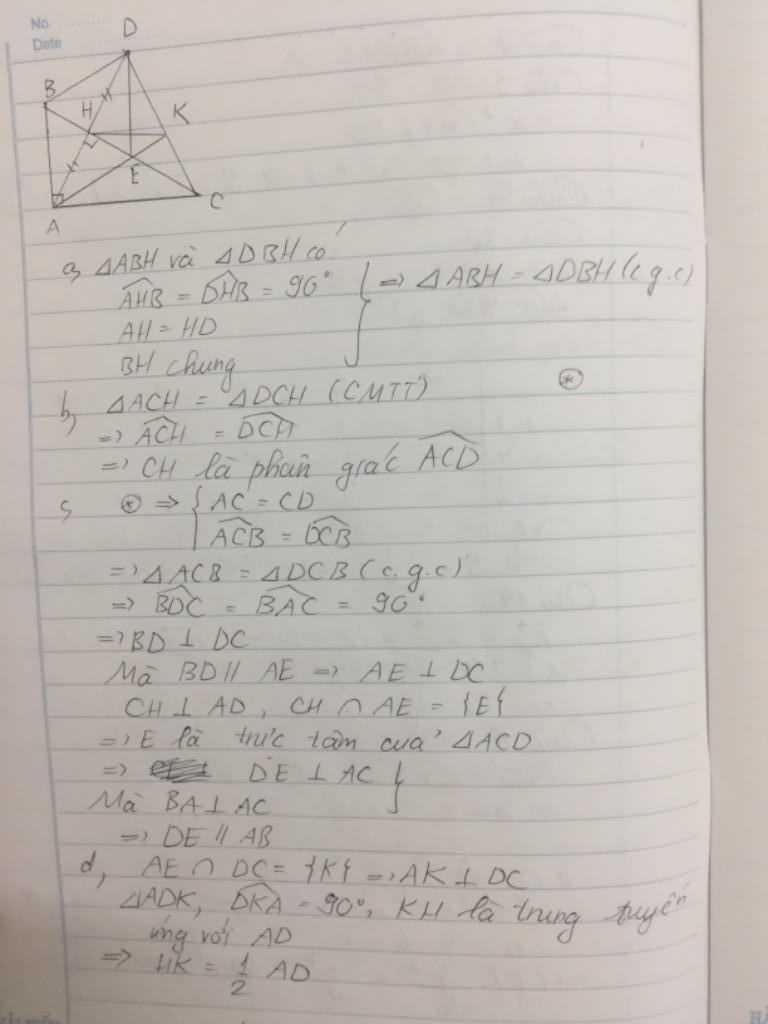 No.
Date
D
B
H
K
E
C
A
a, ΔABH và ΔDBH có:
\widehat{AHB} = \widehat{DHB} = 90° } => ΔABH = ΔDBH (c.g.c)
AH = HD
BH chung
b, ΔACH = ΔDCH (CMTT) (*)
=> \widehat{ACH} = \widehat{DCH}
=> CH là phân giác \widehat{ACD}
c, (*) => { AC = CD
\widehat{ACB} = \widehat{DCB}
=> ΔACB = ΔDCB (c.g.c)
=> \widehat{BDC} = \widehat{BAC} = 90°
=> BD ⊥ DC
Mà BD // AE => AE ⊥ DC
CH ⊥ AD, CH ∩ AE = {E}
=> E là trực tâm của ΔACD
=> DE ⊥ AC }
Mà BA ⊥ AC
=> DE // AB
d, AE ∩ DC = {K} => AK ⊥ DC
ΔADK, \widehat{DKA} = 90°, KH là trung tuyến
ứng với AD
=> HK = 1/2 AD